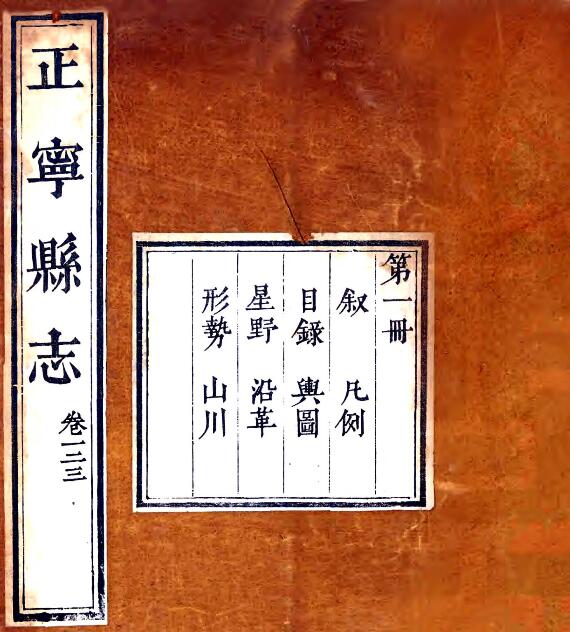 正寧縣志 卷一二三
第一冊
叙 凡例
目錄 輿圖
星野 沿革
形勢 山川